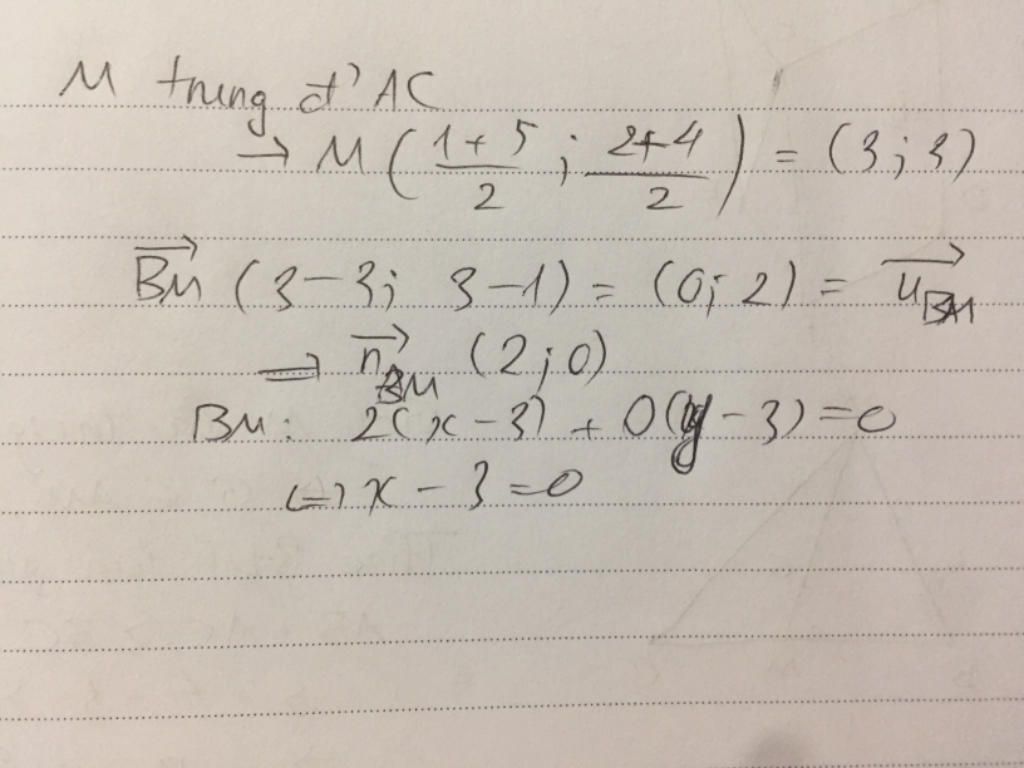 M trung đ' AC
→ M ( \frac{1+5}{2} ; \frac{2+4}{2} ) = (3 ; 3)
\overrightarrow{BM} (3-3; 3-1) = (0; 2) = \overrightarrow{u}_{BM}
⇒ \overrightarrow{n}_{BM} (2 ; 0)
BM: 2(x-3) + 0(y-3) = 0
⇔ x - 3 = 0